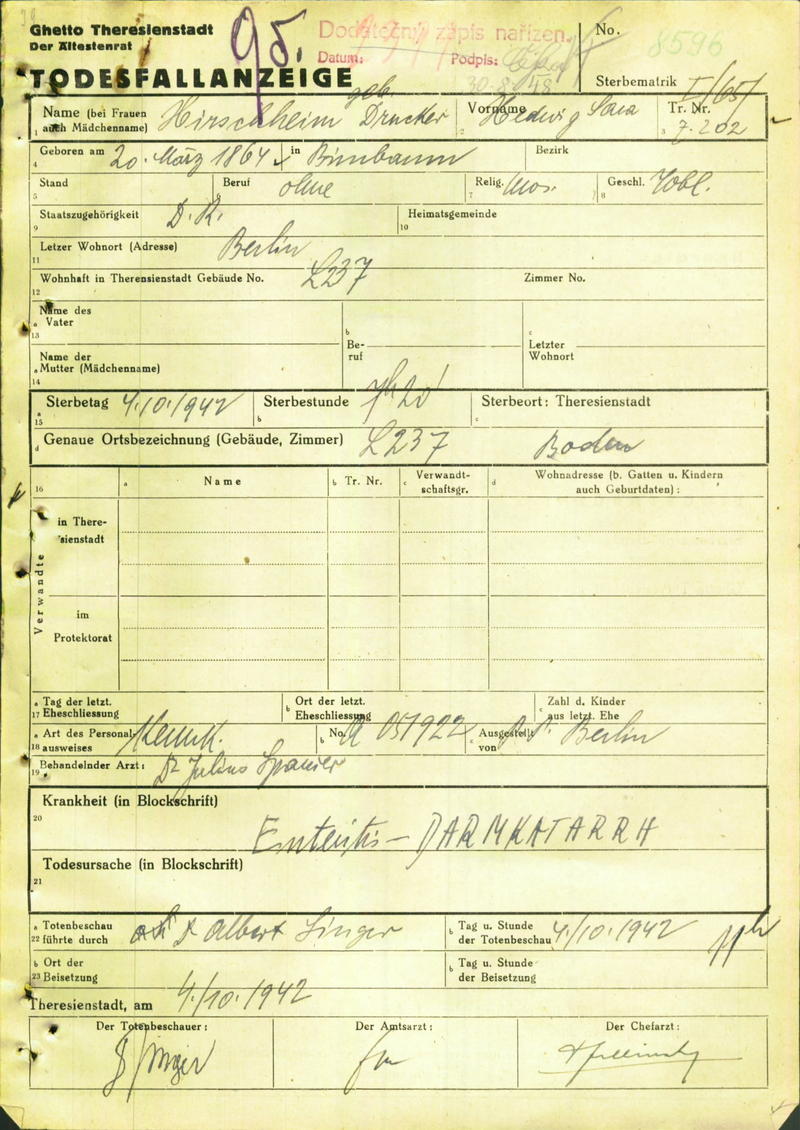 Ghetto Theresienstadt
Der Ältestenrat
95.
Dodatečný zápis nařízen.
Datum:
Podpis:
No.
8596
TODESFALLANZEIGE
Sterbematrik I/65/
1 Name (bei Frauen auch Mädchenname) Hirschheim geb. Drucker
2 Vorname Hedwig Sara
3 Tr. Nr. 7.202
4 Geboren am 20. März 1864 in Birnbaum Bezirk
5 Stand
6 Beruf ohne
7 Relig. Mos.
8 Geschl. Wbl.
9 Staatszugehörigkeit D.R.
10 Heimatsgemeinde
11 Letzer Wohnort (Adresse) Berlin
12 Wohnhaft in Therensienstadt Gebäude No. L237 Zimmer No.
13 a Name des Vater
b Beruf
c Letzter Wohnort
14 a Name der Mutter (Mädchenname)
15 a Sterbetag 4./10./1942
b Sterbestunde 7h 20'
c Sterbeort: Theresienstadt
d Genaue Ortsbezeichnung (Gebäude, Zimmer) L237 Boden
16 a Name
b Tr. Nr.
c Verwandtschaftsgr.
d Wohnadresse (b. Gatten u. Kindern auch Geburtdaten):
Verwandte
in Theresienstadt
im Protektorat
17 a Tag der letzt. Eheschliessung
b Ort der letzt. Eheschliessung
c Zahl d. Kinder aus letzt. Ehe
18 a Art des Personalausweises Kennk.
b No. A 051922
c Ausgestellt von P.P. Berlin
19 Behandelnder Arzt: Dr Julius Spanier
20 Krankheit (in Blockschrift)
Enteritis – DARMKATARRH
21 Todesursache (in Blockschrift)
22 a Totenbeschau führte durch Dr Albert Singer
b Tag u. Stunde der Totenbeschau 4./10.1942
23 b Ort der Beisetzung
b Tag u. Stunde der Beisetzung
Theresienstadt, am 4./10.1942
Der Totenbeschauer:
Der Amtsarzt:
Der Chefarzt:
Singer